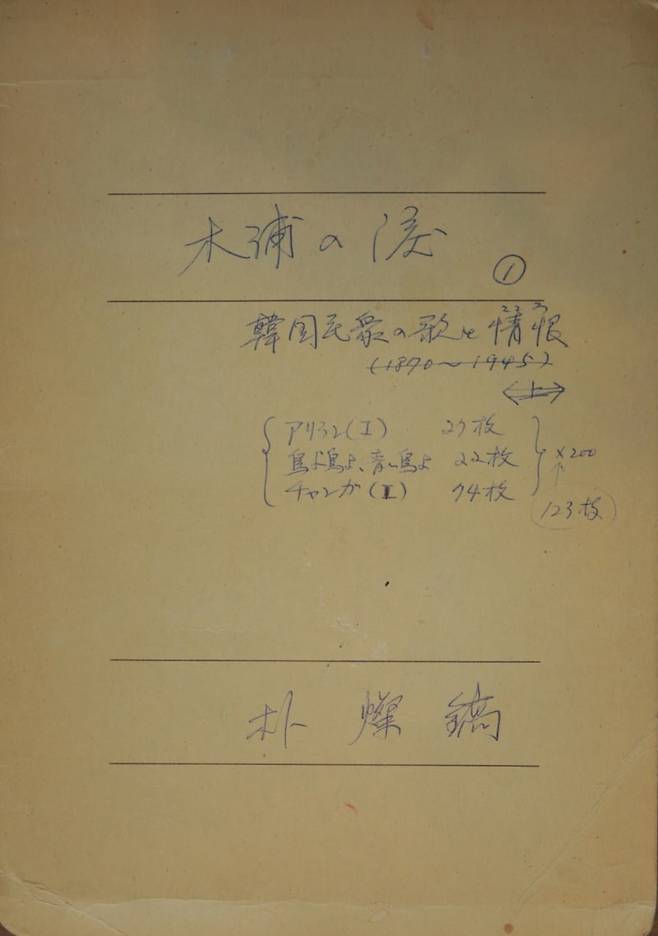 木浦の涙
①
韓国民衆の歌と情恨
(1890～1945)
上
アリラン(I) 27枚
鳥よ鳥よ、青い鳥よ 22枚
チャンガ(I) 74枚
×200
123枚
朴燦鎬